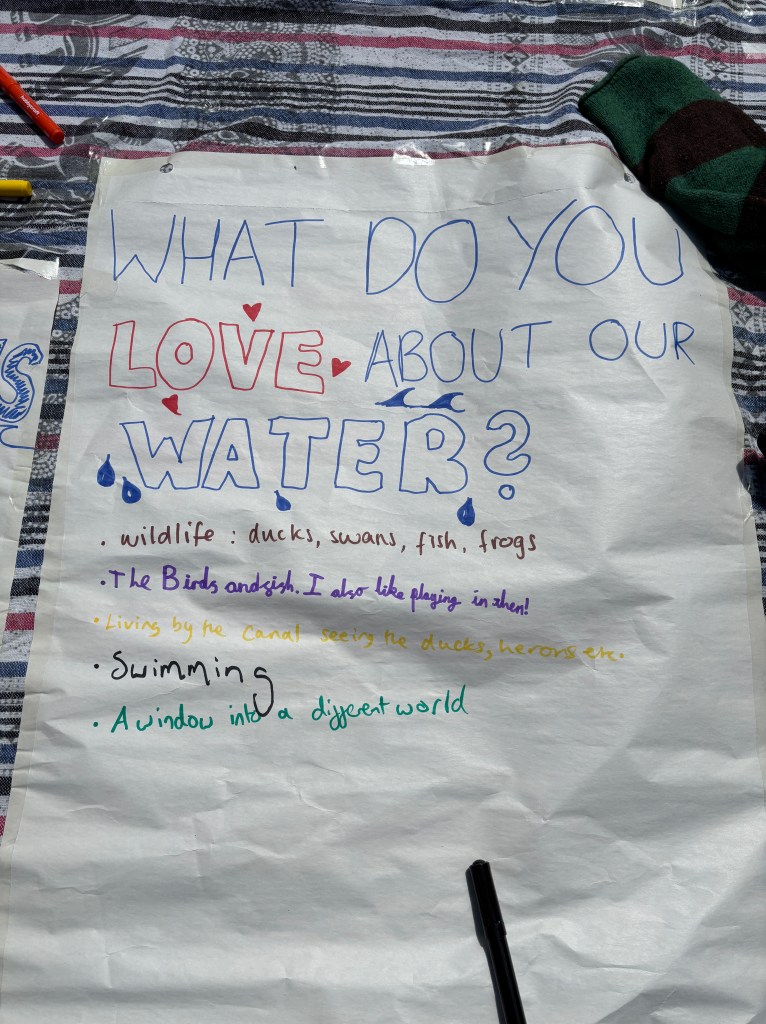 WHAT DO YOU
LOVE ABOUT OUR
WATER?
. wildlife : ducks, swans, fish, frogs
. The Birds and fish. I also like playing in them!
. Living by the Canal seeing the ducks, herons etc.
. Swimming
. A window into a different world